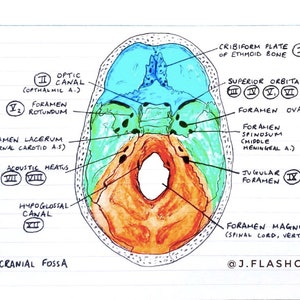 CRIBIFORM PLATE
OF ETHMOID BONE
II OPTIC
CANAL
(OPTHALMIC A.)
SUPERIOR ORBITAL
III IV V1 VI
V2 FORAMEN
ROTUNDUM
FORAMEN OVA
FORAMEN
SPINOSUM
(MIDDLE
MENINGEAL A.)
MEN LACERUM
NAL CAROTID A.S)
ACOUSTIC MEATUS
VII VIII
JUGULAR
FORAMEN IX
HYPOGLOSSAL
CANAL
XII
FORAMEN MAGN
(SPINAL CORD, VERT
CRANIAL FOSSA
@J.FLASHC